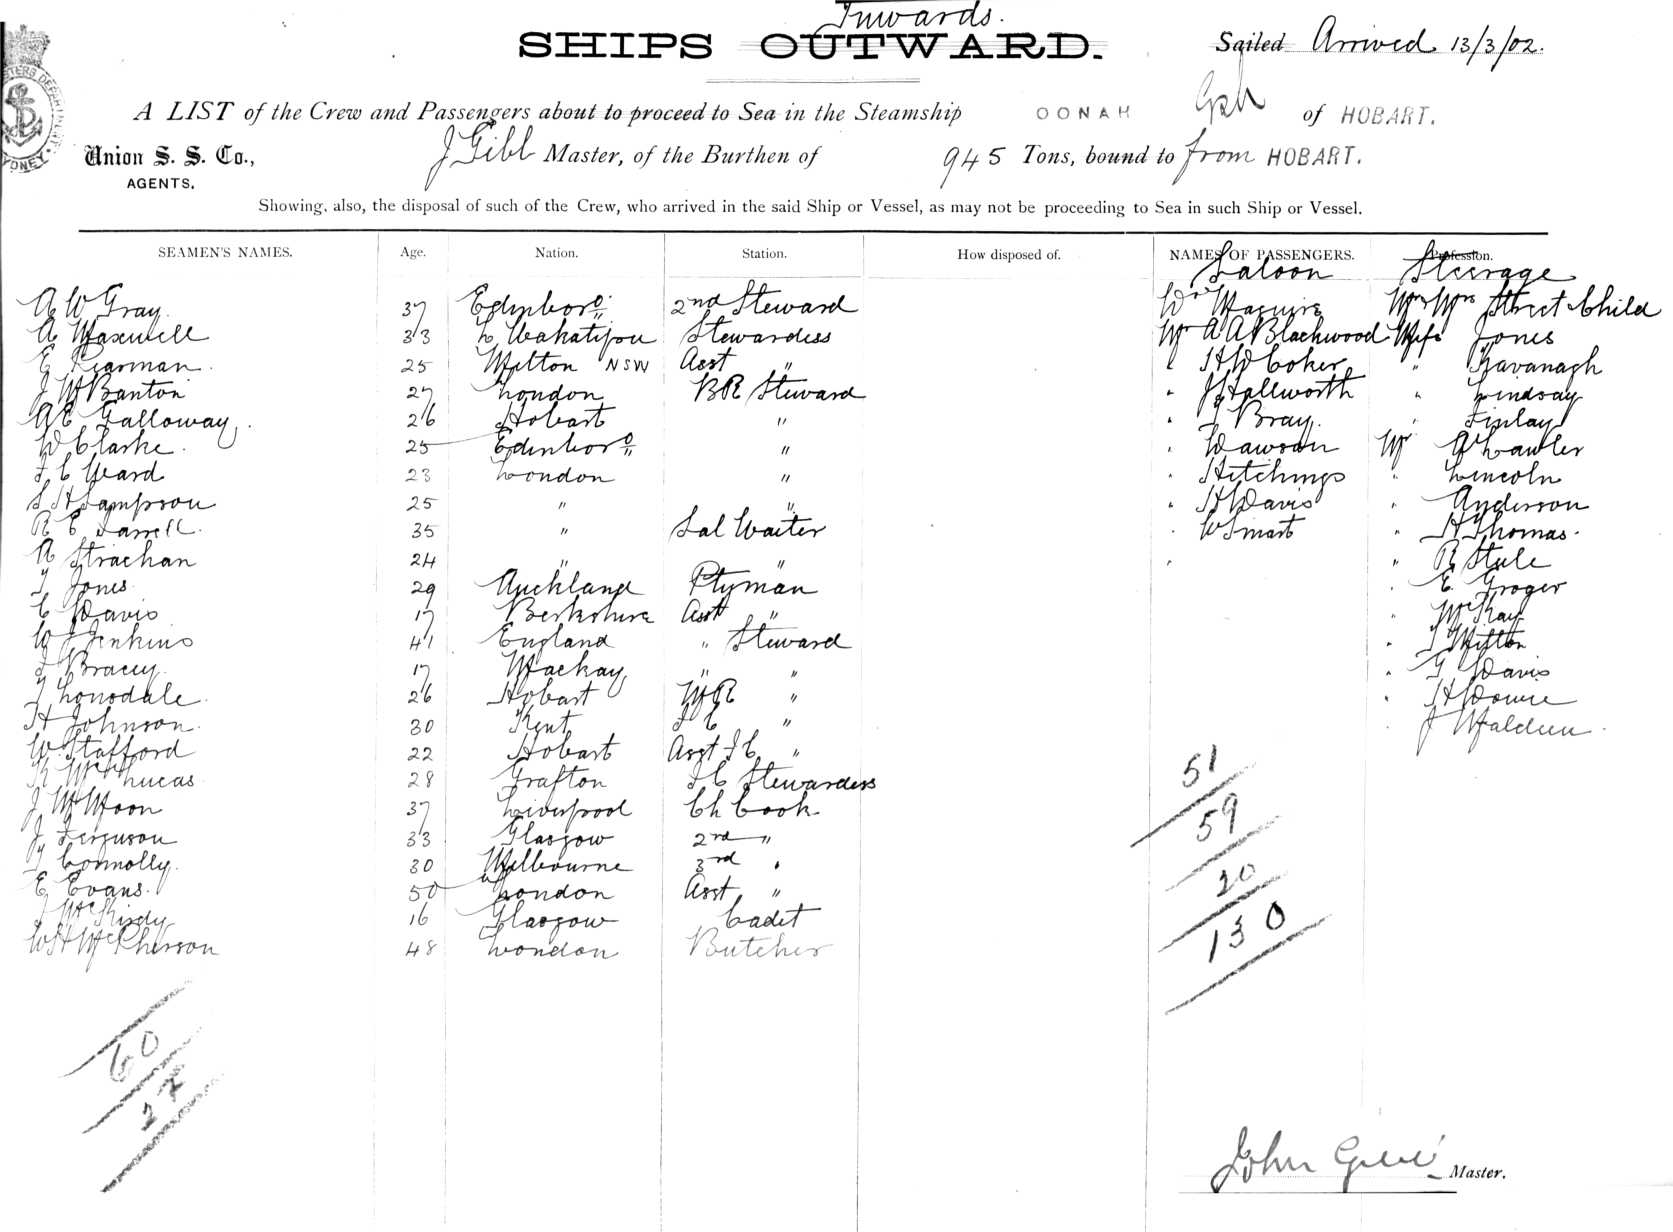 Inwards.
SHIPS OUTWARD.
Sailed Arrived 13/3/02.
A LIST of the Crew and Passengers about to proceed to Sea in the Steamship OONAH of HOBART.
Union S. S. Co., J Gibb Master, of the Burthen of 945 Tons, bound to from HOBART.
AGENTS.
SYDNEY
Showing, also, the disposal of such of the Crew, who arrived in the said Ship or Vessel, as may not be proceeding to Sea in such Ship or Vessel.
SEAMEN'S NAMES. Age. Nation. Station. How disposed of. NAMES OF PASSENGERS. Profession.
Saloon Steerage
A W Gray 37 Edinboro 2nd Steward
A Maxwell 33 L Wakatipu Stewardess
E Pearman 25 Milton NSW Asst "
J M Banton 27 London BR Steward
A E Galloway 26 Hobart "
W Clarke 25 Edinboro "
F C Ward 23 London "
S H Sampson 25 " "
R E Farrell 35 " Sal Waiter
A Strachan 24 " "
T Jones 29 Auckland Ptyman
C Davis 17 Berkshire Asst "
W J Jenkins 41 England " Steward
F Bracey 17 Mackay " "
T Lonsdale 26 Hobart "
H Johnson 30 Kent "
W Stafford 22 Hobart Asst "
Lucas 28 Grafton Stewardess
J M Moon 37 Liverpool Ch Cook
J Ferguson 33 Glasgow 2nd "
T Connolly 30 Melbourne 3rd "
E Evans 50 London Asst "
J McKirdy 16 Glasgow Cadet
W H McPherson 48 London Butcher
Maguire
Mr A A Blackwood
" H W Coker
" J Hallworth
" T Bray
" Dawson
" Hitchings
" H Davis
" W Smart
"
Mr Mrs Street Child
Miss Jones
" Kavanagh
" Lindsay
" Finlay
Mr A Lawler
" Lincoln
" Anderson
" H Thomas
" R Steele
" E Groger
" McKay
" T Milton
" G Davis
" H Downie
" J Waldren
51
59
20
130
60
John Gibb Master.